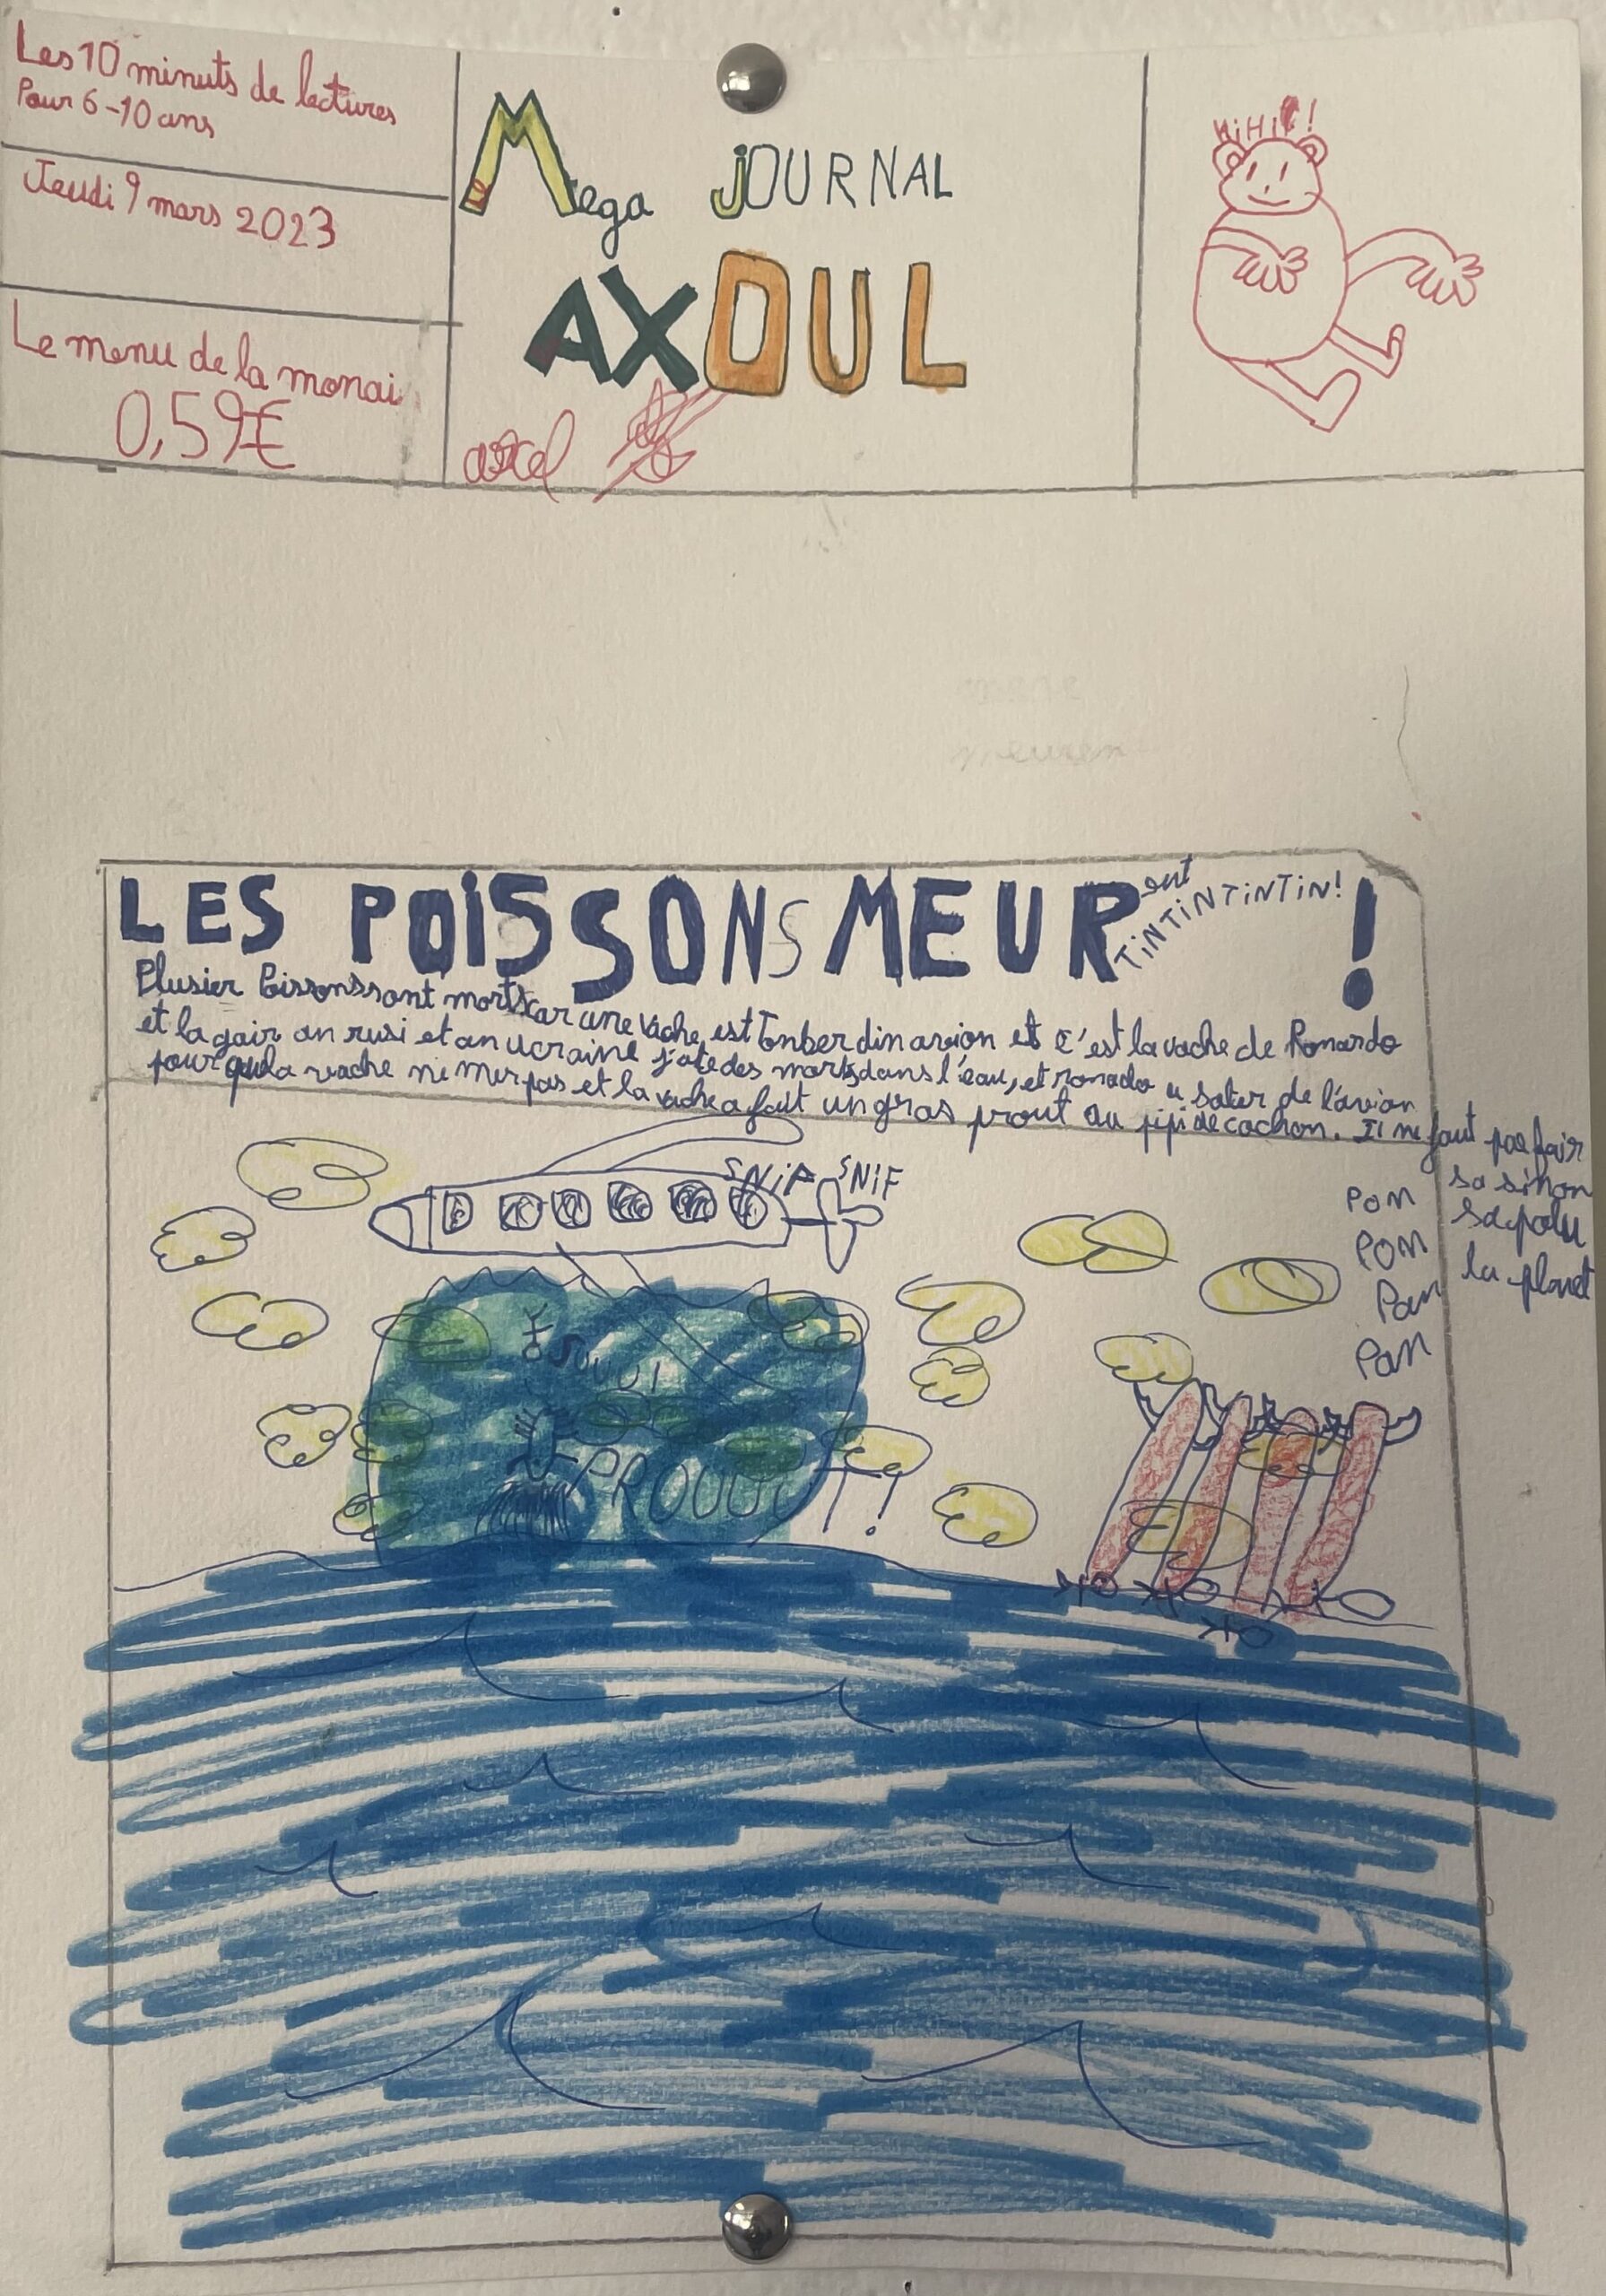 Les 10 minuts de lectures
Pour 6-10 ans
Jeudi 9 mars 2023
Le menu de la monai
0,59€
Mega JOURNAL
AXOUL
HiHi !
LES POiSSONs MEURent !
TiNTiNTiNTiN!
Plusier Poissons sont morts car une vache est Tonber din avion et c'est la vache de Romardo
et la gair an rusi et an ucraine jate des morts dans l'eau, et romado u sater de l'avion
pour qula vache ni mer pas et la vache a fait un gras prout au pipi de cochon. Il ne faut pas fair
sa sinon
sa polu
la planet
SNiF SNiF
POM
POM
Pam
Pam
PROUUU !!